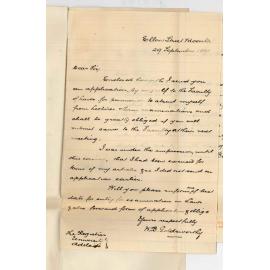 29 September
Dear Sir
Enclosed herewith I send you
an application by myself to the Faculty
of Laws for permission to absent myself
from lectures
shall be greatly obliged if you will
submit same to the Faculty at their next
meeting.
I was under the impression, until
this evening, that I had been excused for
term of my articles & so I did not send an
application earlier.
Will you please inform me of the last
date for entry for examination in Laws
also forward form of application & oblige
Yours respectfully
The Registrar
University
Adelaide